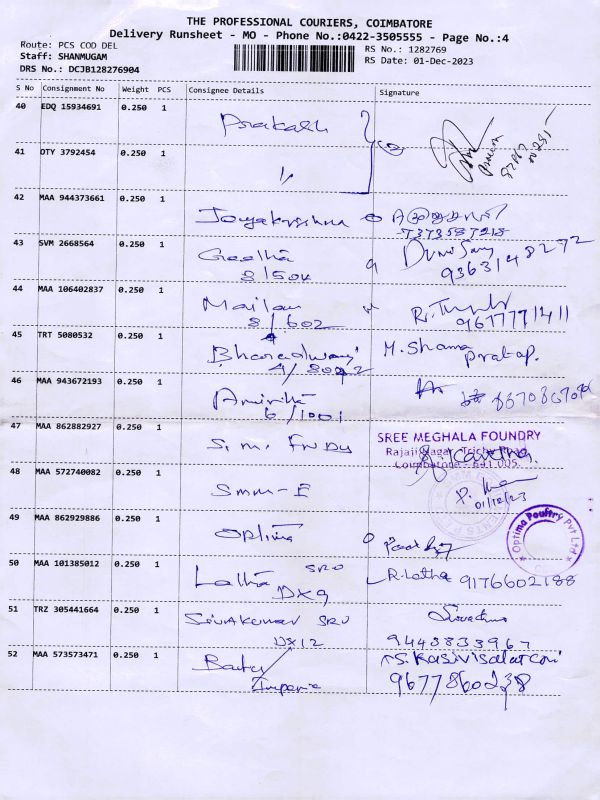 THE PROFESSIONAL COURIERS, COIMBATORE
Delivery Runsheet - MO - Phone No.:0422-3505555 - Page No.:4
Route: PCS COD DEL
RS No.: 1282769
Staff: SHANMUGAM
RS Date: 01-Dec-2023
DRS No.: DCJB128276904
S No Consignment No Weight PCS Consignee Details Signature
40 EDQ 15934691 0.250 1 Prakash
41 DTY 3792454 0.250 1 "
42 MAA 944373661 0.250 1
7373587218
43 SVM 2668564 0.250 1 Geetha
8/504 9363148272
44 MAA 106402837 0.250 1
8/602 9677771411
45 TRT 5080532 0.250 1 M. Shama
Pratap.
46 MAA 943672193 0.250 1 Amirtha
6/1001
47 MAA 862882927 0.250 1 S.M. FNDY SREE MEGHALA FOUNDRY
Rajaji Nagar, Trichy Road,
Coimbatore - 641 005.
48 MAA 572740082 0.250 1 SMM-E
01/12/23
49 MAA 862929886 0.250 1 Optima
Optima Poultry Pvt Ltd
50 MAA 101385012 0.250 1 Latha SRO R. Latha 9176602188
DX9
51 TRZ 305441664 0.250 1 Sivakumar SRO
DX12 9443833967
52 MAA 573573471 0.250 1 S. Kasivisalatconi
9677860238